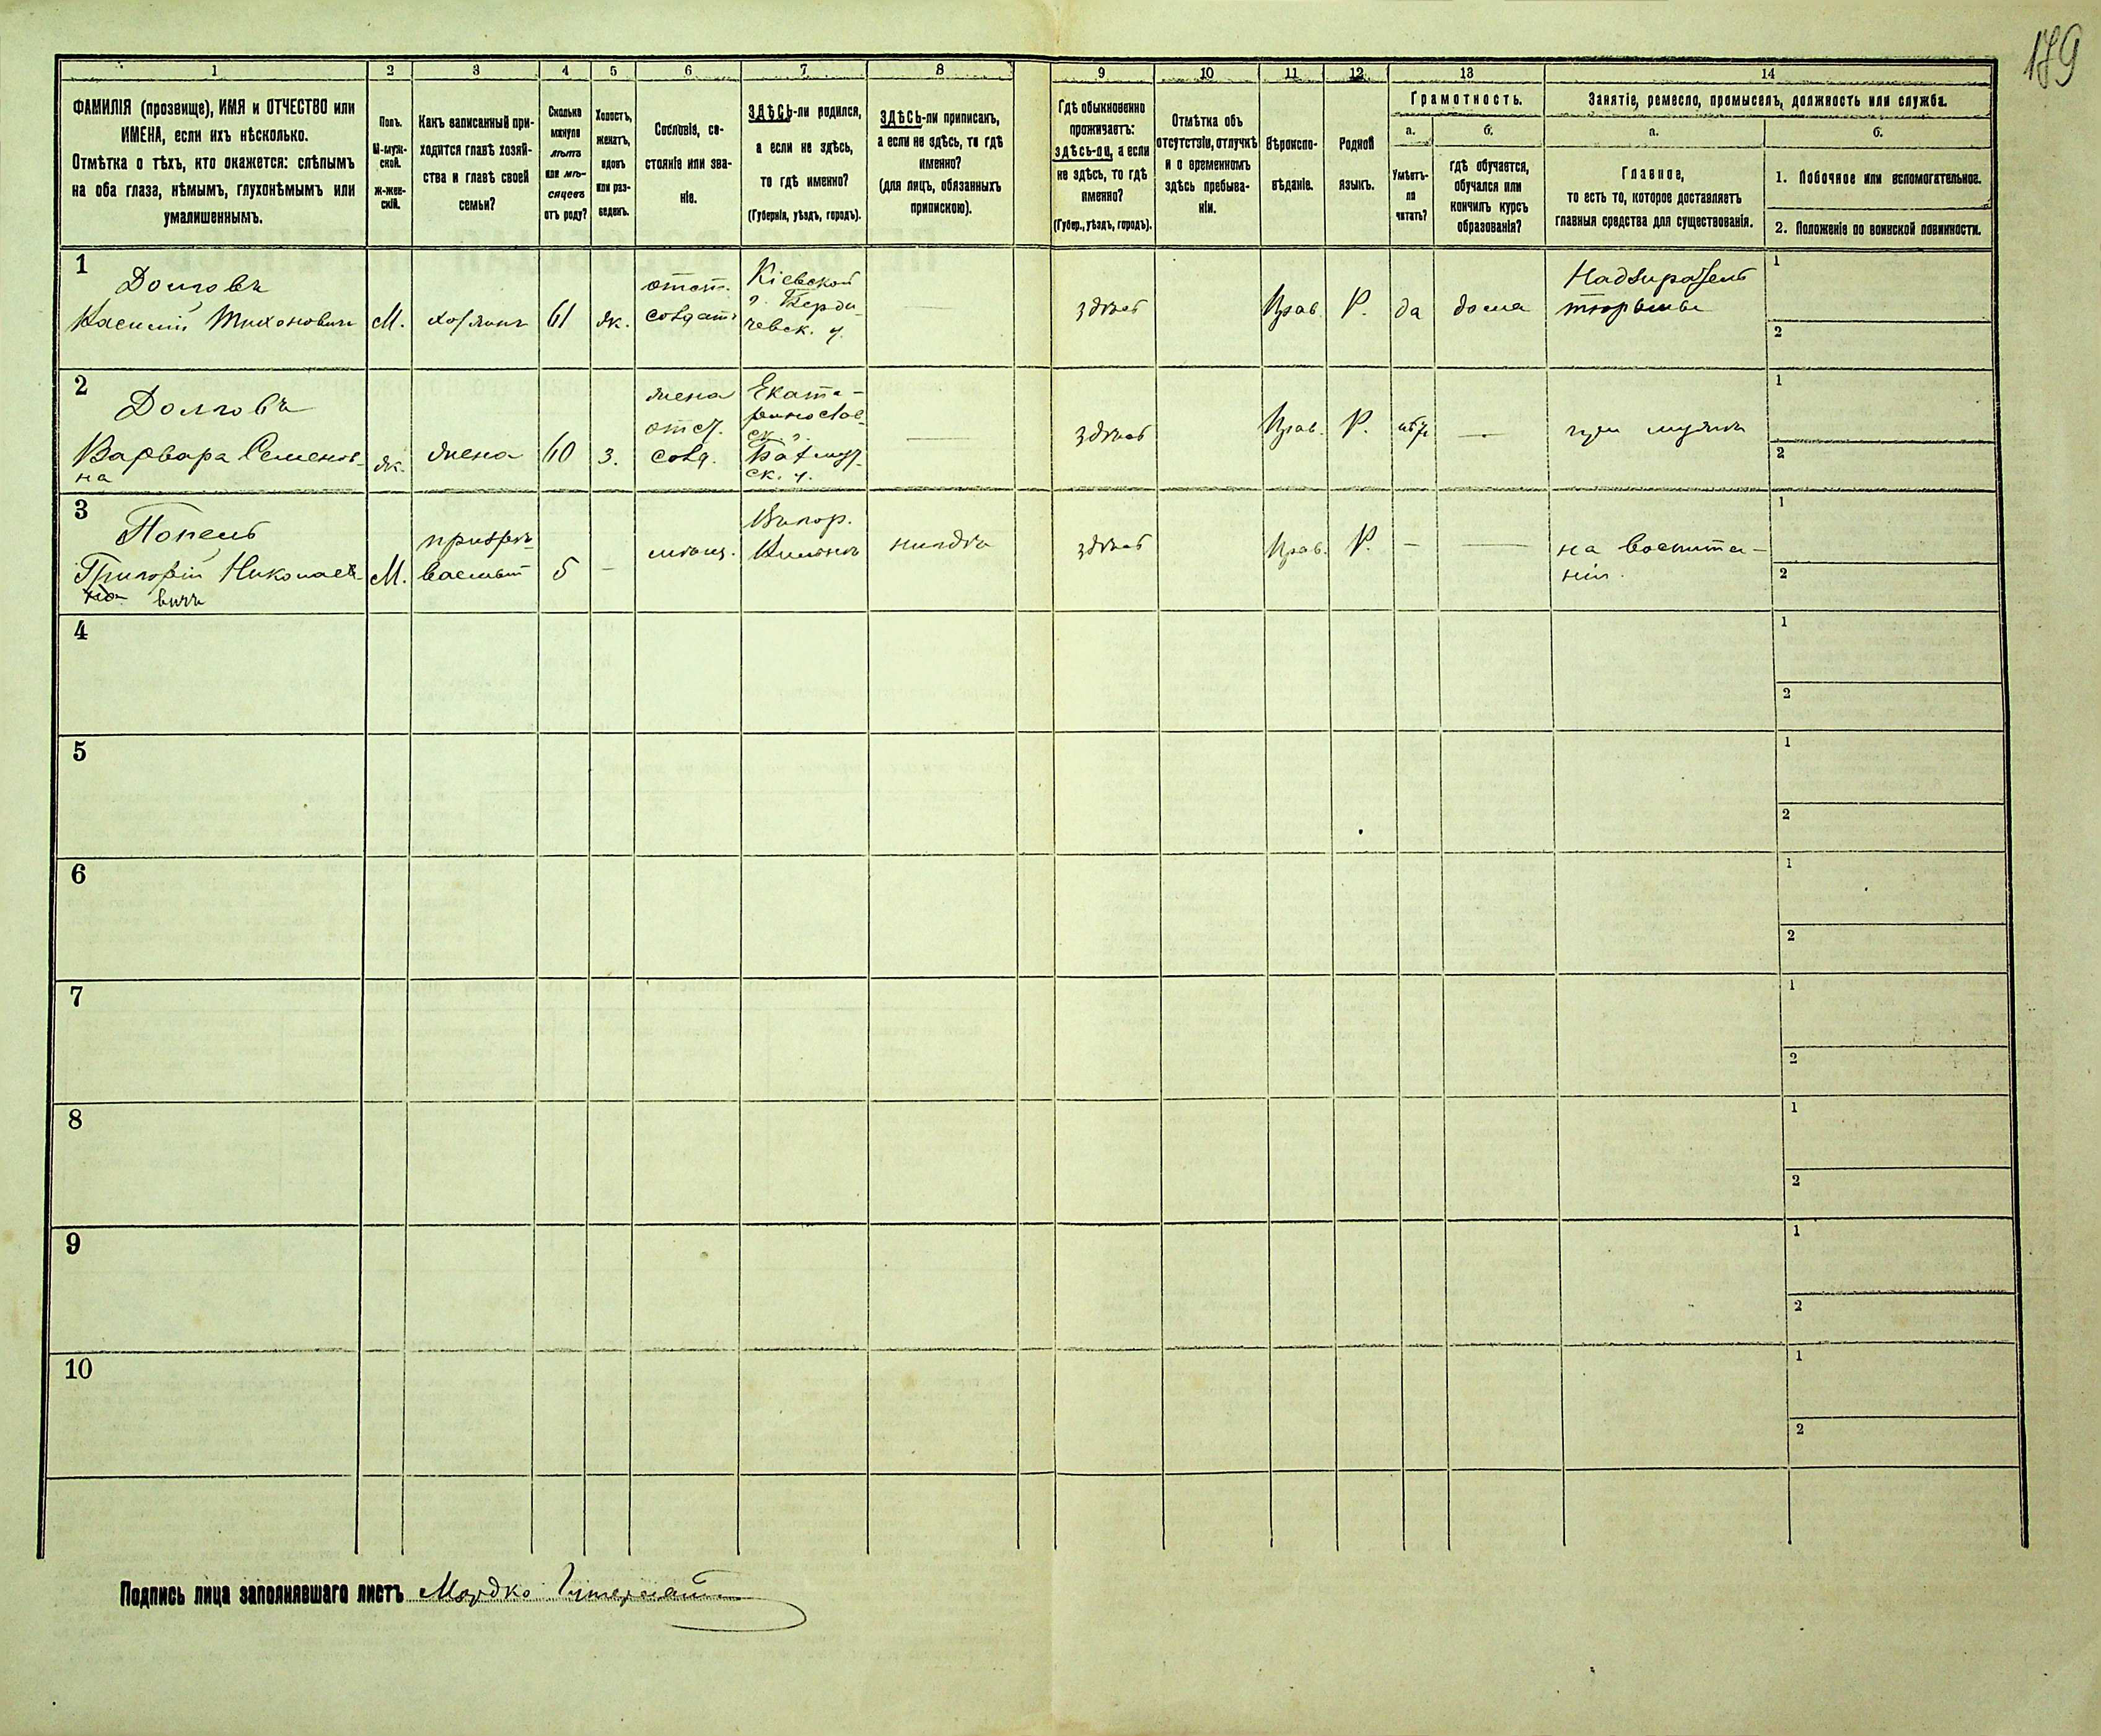 179
1 2 3 4 5 6 7 8 9 10 11 12 13 14
ФАМИЛІЯ (прозвище), ИМЯ и ОТЧЕСТВО или
ИМЕНА, если ихъ нѣсколько.
Отмѣтка о тѣхъ, кто окажется: слѣпымъ
на оба глаза, нѣмымъ, глухонѣмымъ или
умалишеннымъ.
Полъ.
М-муж-
ской.
Ж-жен-
скій.
Какъ записанный при-
ходится главѣ хозяй-
ства и главѣ своей
семьи?
Сколько
минуло
лѣтъ
или мѣ-
сяцевъ
отъ роду?
Холостъ,
женатъ,
вдовъ
или раз-
веденъ.
Сословіе, со-
стояніе или зва-
ніе.
ЗДѢСЬ-ли родился,
а если не здѣсь,
то гдѣ именно?
(Губернія, уѣздъ, городъ).
ЗДѢСЬ-ли приписанъ,
а если не здѣсь, то гдѣ
именно?
(для лицъ, обязанныхъ
припискою).
Гдѣ обыкновенно
проживаетъ:
здѣсь-ли, а если
не здѣсь, то гдѣ
именно?
(Губер., уѣздъ, городъ).
Отмѣтка объ
отсутствіи, отлучкѣ
и о временномъ
здѣсь пребыва-
ніи.
Вѣроиспо-
вѣданіе.
Родной
языкъ.
Грамотность.
а.
Умѣетъ-
ли
читать?
б.
гдѣ обучается,
обучался или
кончилъ курсъ
образованія?
Занятіе, ремесло, промыселъ, должность или служба.
а.
Главное,
то есть то, которое доставляетъ
главныя средства для существованія.
б.
1. Побочное или вспомогательное.
2. Положеніе по воинской повинности.
1
Долговъ
Василій Тихоновичъ
М.
хозяинъ
61
ж.
отст.
солдатъ
Кіевской
г. Берди-
чевск. у.
—
здѣсь
Прав.
Р.
да
дома
Надзиратель
тюрьмы
1
2
2
Долговъ
Варвара Семенов-
на
ж.
жена
60
з.
жена
отст.
солд.
Екате-
ринослав-
ск. г.
Бахмут-
ск. у.
—
здѣсь
Прав.
Р.
нѣтъ
—
при мужѣ
1
2
3
Попель
Григорій Николае-
вичъ
М.
5
—
мѣщ.
здѣсь
Прав.
Р.
—
—
на воспита-
ніи.
1
2
4
1
2
5
1
2
6
1
2
7
1
2
8
1
2
9
1
2
10
1
2
Подпись лица заполнявшаго листъ Мордко